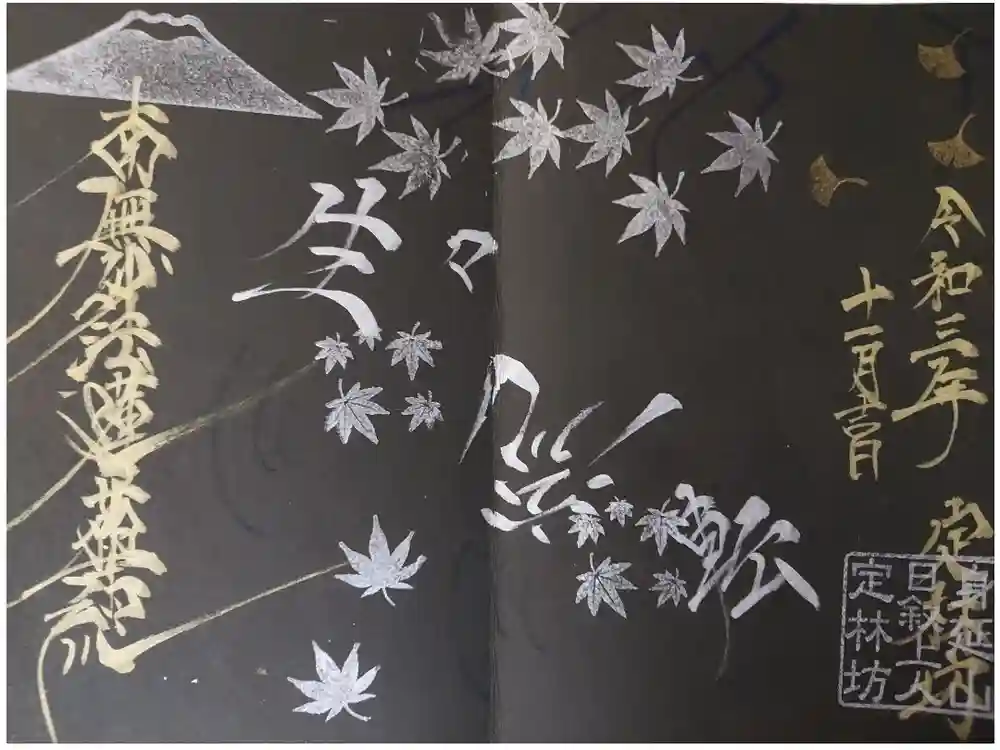 令和三年 定林坊
十一月吉日
身延山
日叙上人
定林坊
南無妙法蓮華経